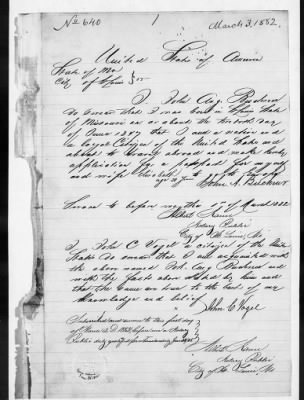 No 640
March 3, 1882.
United State of America
State of Mo
City of Louis } ss
I, John Aug.
do swear that I was born in State
of Missouri on or about the day
of June 1857 that I am a native and
a loyal Citizen of the United States and
about to travel abroad and make
application for a passport for myself
and wife Elizabeth
John A.
Sworn to before me the of March 1882
Notary Public
City of St Louis, Mo.
I John C Vogel a citizen of the United
State do swear that I am acquainted with
the above named Joh. Aug and
with the facts stated by him and
that the same are true to the best of my
Knowledge and belief
John C Vogel
Subscribed and sworn to this first day
of March A.D. 1882, before me a Notary
Public duly qualified
Notary Public
City of St Louis, Mo